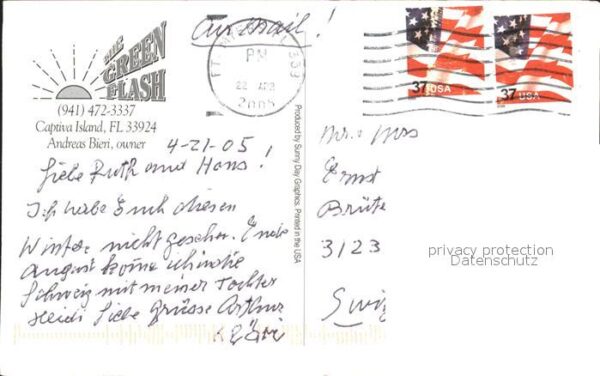 THE
GREEN
FLASH
(941) 472-3337
Captiva Island, FL 33924
Andreas Bieri, owner
4-21-05
Liebe Ruth und Hans!
Ich habe Euch diesen
Winter nicht gesehen. Ende
August komme ich in die
Schweiz mit meiner Tochter
Heidi Liebe Grüsse Arthur
Produced by Sunny Day Graphics. Printed in the USA
Air Mail!
FT
PM
22 APR
2005
37 USA
37 USA
Mr. + Mrs
Ernst
Brütte
3123
privacy protection
Datenschutz